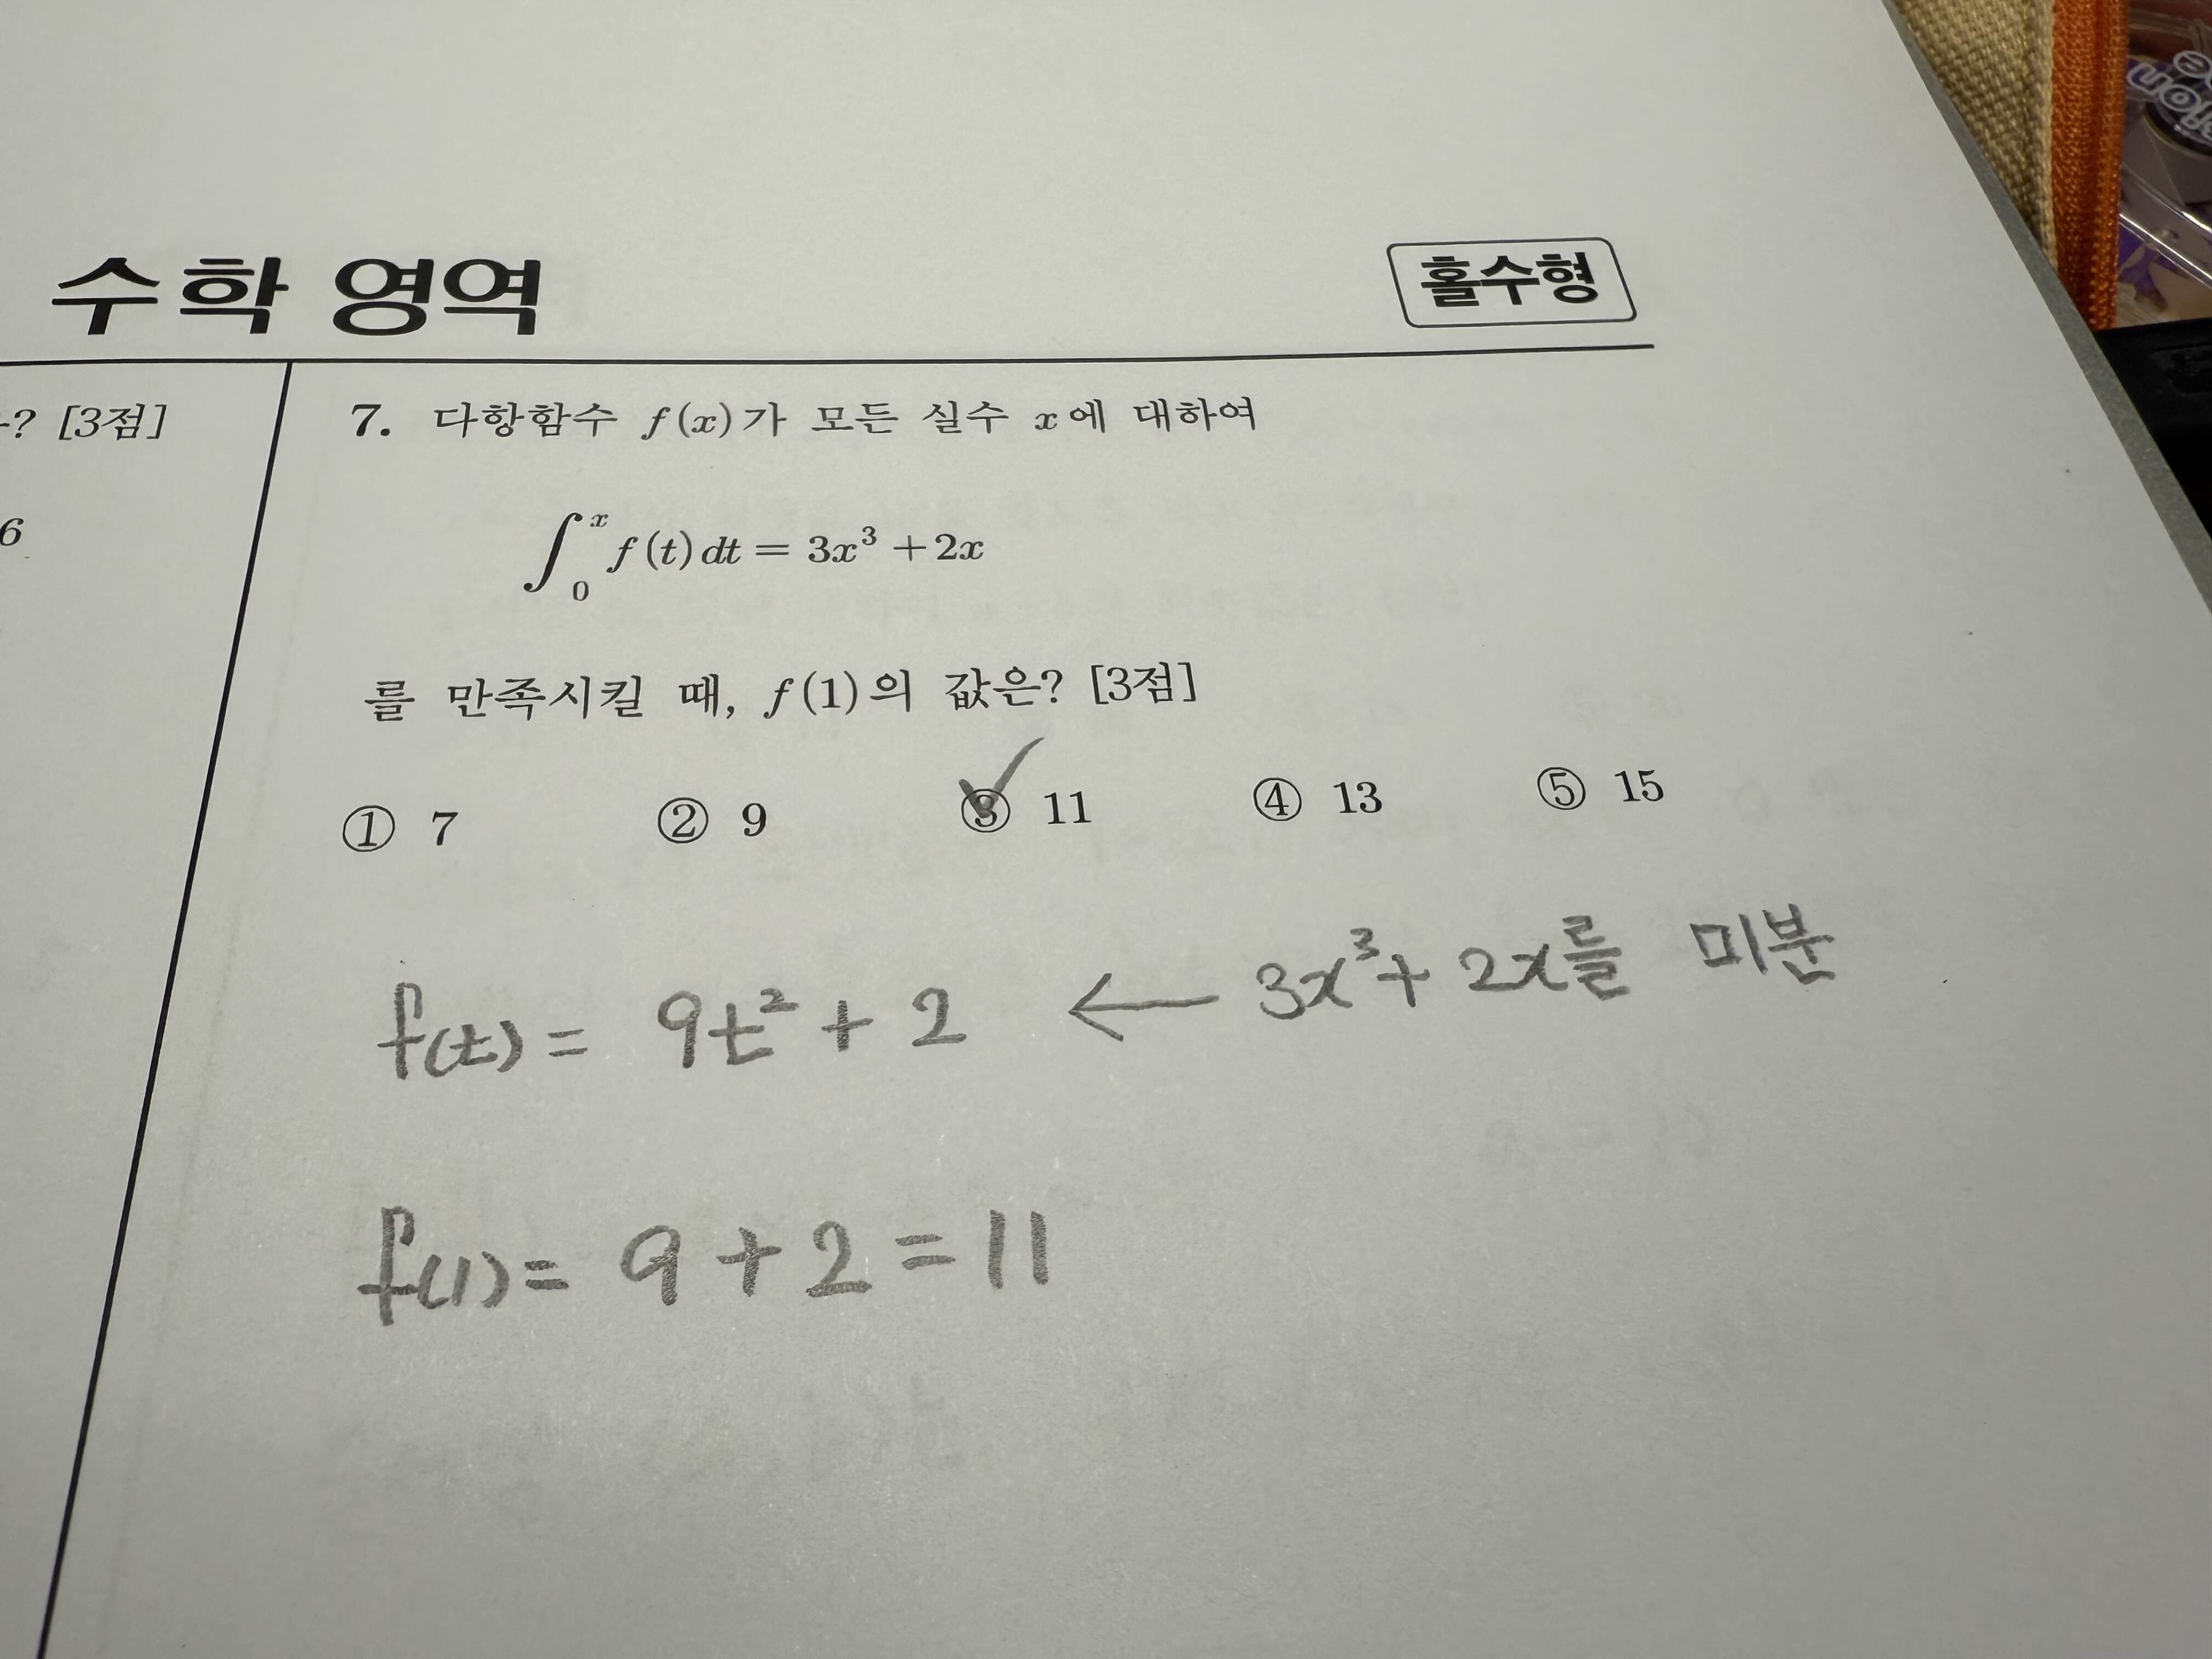 수학 영역
홀수형
? [3점]
6
7. 다항함수 f(x)가 모든 실수 x에 대하여
∫₀ˣ f(t)dt = 3x³ + 2x
를 만족시킬 때, f(1)의 값은? [3점]
① 7 ② 9 ③ 11 ④ 13 ⑤ 15
f(t) = 9t² + 2 ← 3x³ + 2x를 미분
f(1) = 9 + 2 = 11